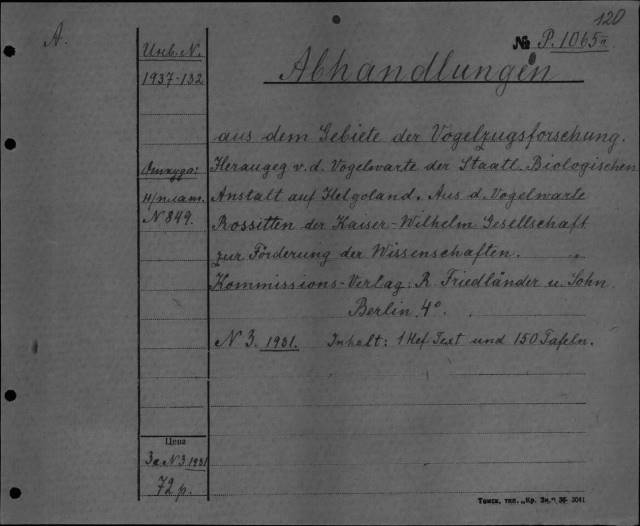 120
A.
№ P.1065a
Инв. N.
1937-132
Abhandlungen
aus dem Gebiete der Vogelzugsforschung.
Откуда:
Heraugeg v. d. Vogelwarte der Staatl. Biologischen
Н/плат.
N 849.
Anstalt auf Helgoland. Aus d. Vogelwarte
Rossitten der Kaiser-Wilhelm Gesellschaft
zur Förderung der Wissenschaften.
Kommissions-Verlag: R. Friedländer u. Sohn.
Berlin. 4°.
N 3. 1931. Inhalt: 1 Hef Text und 150 Tafeln.
Цена
За N 3 1931
72 р.
Томск, тип. „Кр. Зн." 36 3041